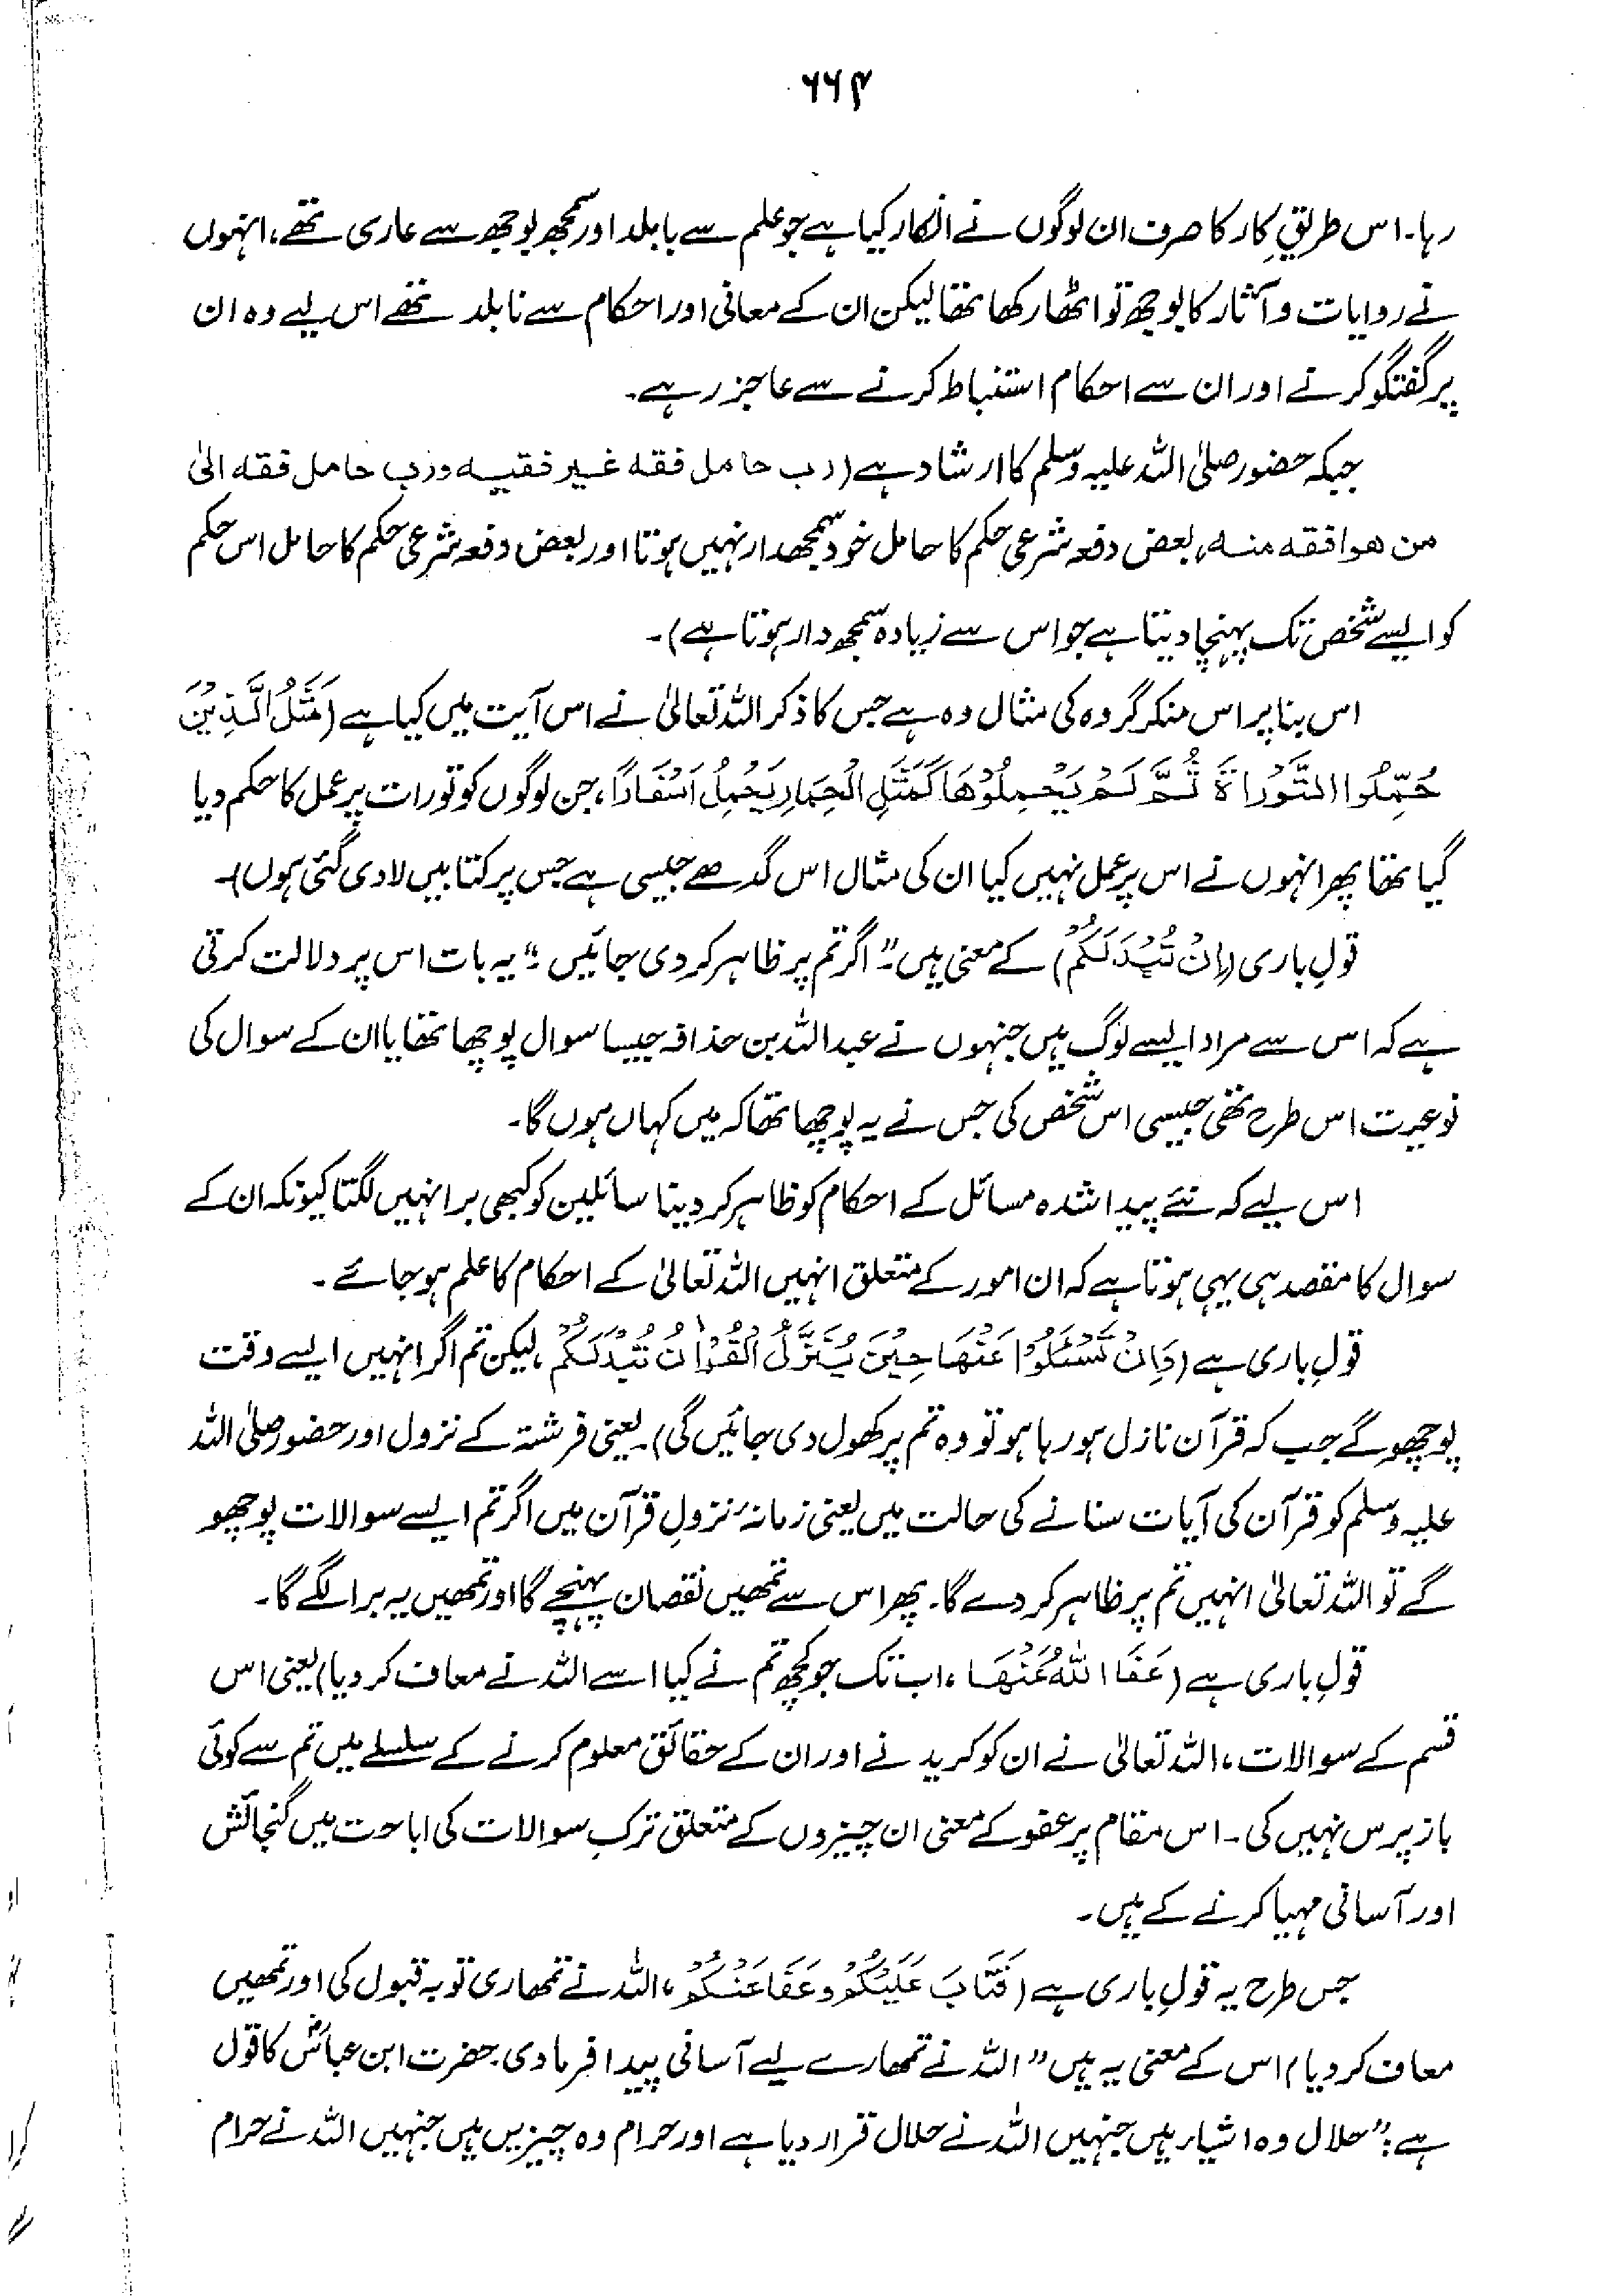 ۶۶۴
رہا۔ اس طریقِ کار کا صرف ان لوگوں نے انکار کیا ہے جو علم سے نابلد اور سمجھ بوجھ سے عاری تھے، انہوں
نے روایات و آثار کا بوجھ تو اٹھا رکھا تھا لیکن ان کے معانی اور احکام سے نابلد تھے اس لیے وہ ان
پر گفتگو کرنے اور ان سے احکام استنباط کرنے سے عاجز رہے۔
جبکہ حضور صلی اللہ علیہ وسلم کا ارشاد ہے (رب حامل فقه غير فقيه ورب حامل فقه الى
من هو افقه منه، بعض دفعہ شرعی حکم کا حامل خود سمجھدار نہیں ہوتا اور بعض دفعہ شرعی حکم کا حامل اس حکم
کو ایسے شخص تک پہنچا دیتا ہے جو اس سے زیادہ سمجھ دار ہوتا ہے)۔
اس بنا پر اس منکر گروہ کی مثال وہ ہے جس کا ذکر اللہ تعالیٰ نے اس آیت میں کیا ہے (مَثَلُ الَّذِيْنَ
حُمِّلُوا التَّوْرَاةَ ثُمَّ لَمْ يَحْمِلُوْهَا كَمَثَلِ الْحِمَارِ يَحْمِلُ اَسْفَارًا، جن لوگوں کو تورات پر عمل کا حکم دیا
گیا تھا پھر انہوں نے اس پر عمل نہیں کیا ان کی مثال اس گدھے جیسی ہے جس پر کتابیں لادی گئی ہوں)۔
قولِ باری (اِنْ تُبْدَ لَكُمْ) کے معنی ہیں۔ "اگر تم پر ظاہر کر دی جائیں۔" یہ بات اس پر دلالت کرتی
ہے کہ اس سے مراد ایسے لوگ ہیں جنہوں نے عبداللہ بن حذافہ جیسا سوال پوچھا تھا یا ان کے سوال کی
نوعیت اس طرح تھی جیسی اس شخص کی جس نے یہ پوچھا تھا کہ میں کہاں ہوں گا۔
اس لیے کہ نئے پیدا شدہ مسائل کے احکام کو ظاہر کر دینا سائلین کو کبھی برا نہیں لگتا کیونکہ ان کے
سوال کا مقصد ہی یہی ہوتا ہے کہ ان امور کے متعلق انہیں اللہ تعالیٰ کے احکام کا علم ہو جائے۔
قولِ باری ہے (وَاِنْ تَسْئَلُوْا عَنْهَا حِيْنَ يُنَزَّلُ الْقُرْاٰنُ تُبْدَ لَكُمْ، لیکن تم اگر انہیں ایسے وقت
پوچھو گے جب کہ قرآن نازل ہو رہا ہو تو وہ تم پر کھول دی جائیں گی)۔ یعنی فرشتہ کے نزول اور حضور صلی اللہ
علیہ وسلم کو قرآن کی آیات سنانے کی حالت میں یعنی زمانۂ نزولِ قرآن میں اگر تم ایسے سوالات پوچھو
گے تو اللہ تعالیٰ انہیں تم پر ظاہر کر دے گا۔ پھر اس سے تمھیں نقصان پہنچے گا اور تمھیں یہ برا لگے گا۔
قولِ باری ہے (عَفَا اللهُ عَنْهَا، اب تک جو کچھ تم نے کیا اسے اللہ نے معاف کر دیا) یعنی اس
قسم کے سوالات، اللہ تعالیٰ نے ان کو کریدنے اور ان کے حقائق معلوم کرنے کے سلسلے میں تم سے کوئی
باز پرس نہیں کی۔ اس مقام پر عفو کے معنی ان چیزوں کے متعلق ترکِ سوالات کی اباحت میں گنجائش
اور آسانی مہیا کرنے کے ہیں۔
جس طرح یہ قولِ باری ہے (فَتَابَ عَلَيْكُمْ وَعَفَا عَنْكُمْ، اللہ نے تمھاری توبہ قبول کی اور تمھیں
معاف کر دیا) اس کے معنی یہ ہیں "اللہ نے تمھارے لیے آسانی پیدا فرما دی۔ حضرت ابن عباسؓ کا قول
ہے: "حلال وہ اشیاء ہیں جنہیں اللہ نے حلال قرار دیا ہے اور حرام وہ چیزیں ہیں جنہیں اللہ نے حرام